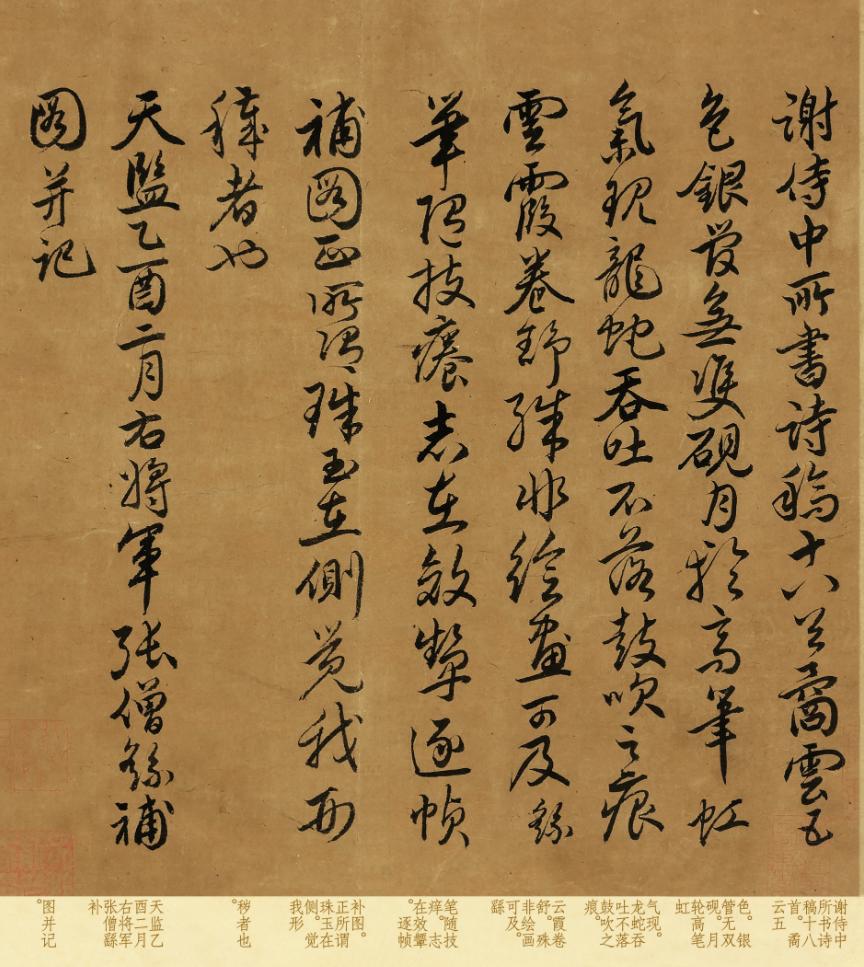 謝侍中所書詩稿十八首矞雲五
色銀管無雙硯月輪高筆虹
氣現龍蛇吞吐不落鼓吹之痕
雲霞卷舒殊非繪畫可及繇
筆隨技癢志在效顰逐幀
補圖正所謂珠玉在側覺我形
穢者也
天監乙酉二月右將軍張僧繇補
圖并記
谢侍中
所书诗
稿十八
首。矞
云五
色。银
管无双
砚。月
轮高笔
虹
气现。
龙蛇吞
吐不落
鼓吹之
痕。
云霞卷
舒。殊
非绘画
可及。
繇
笔随技
痒。志
在效颦
。逐帧
补图。
正所谓
珠玉在
侧。觉
我形
秽者也
。
天监乙
酉二月
右将军
张僧繇
补
图并记
。